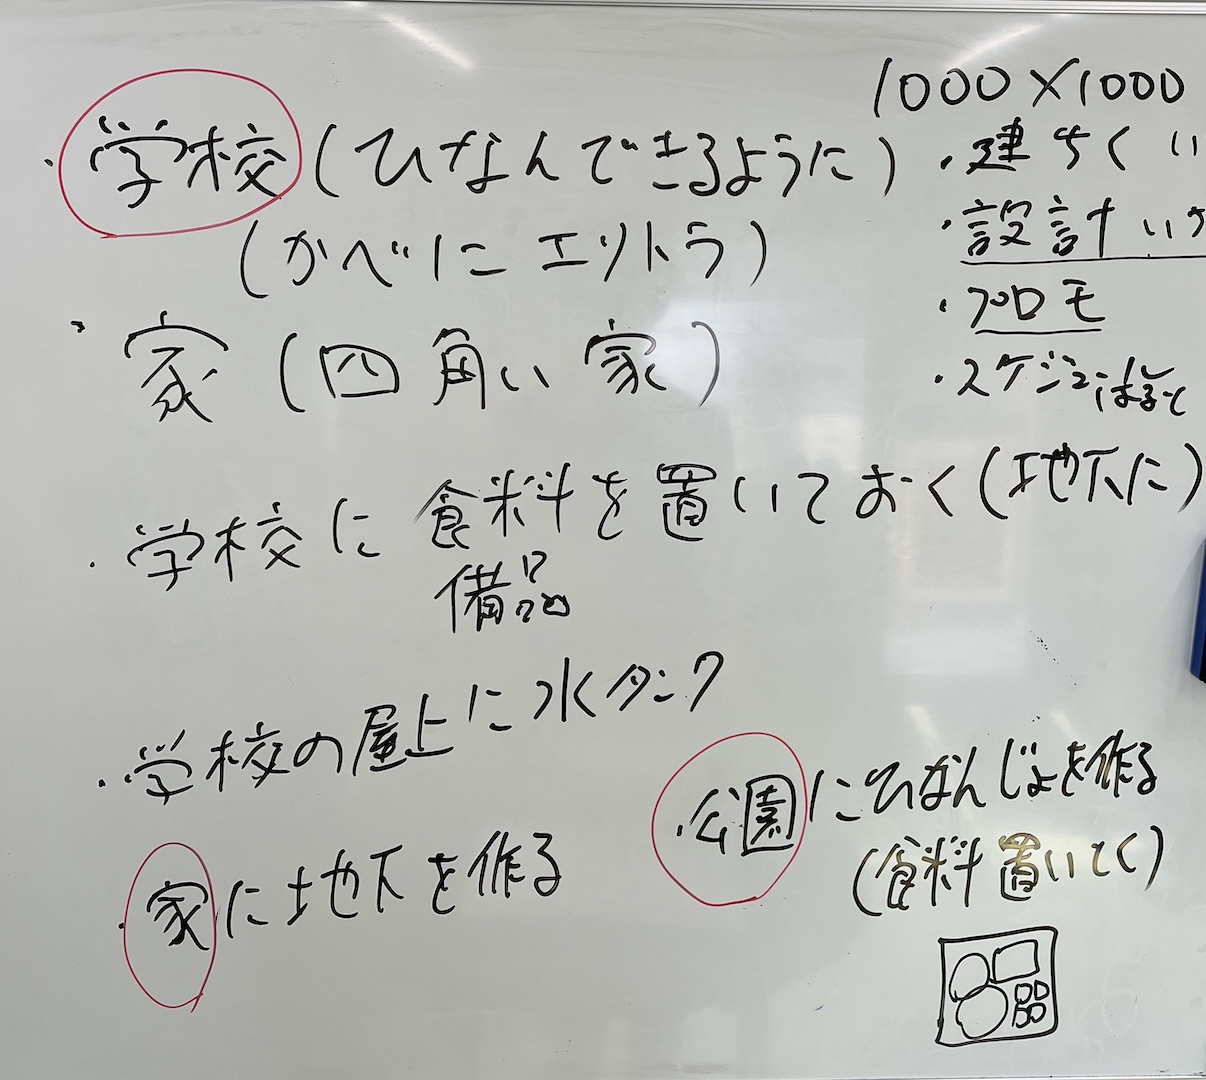 ・学校(ひなんできるように)
(かべにエリトラ)
・家(四角い家)
・学校に食料を置いておく(地下に)
備品
・学校の屋上に水タンク
・家に地下を作る
1000×1000
・建ちくい
・設計い
・プロモ
・スケジュ
・公園にひなんじょを作る
(食料置いとく)